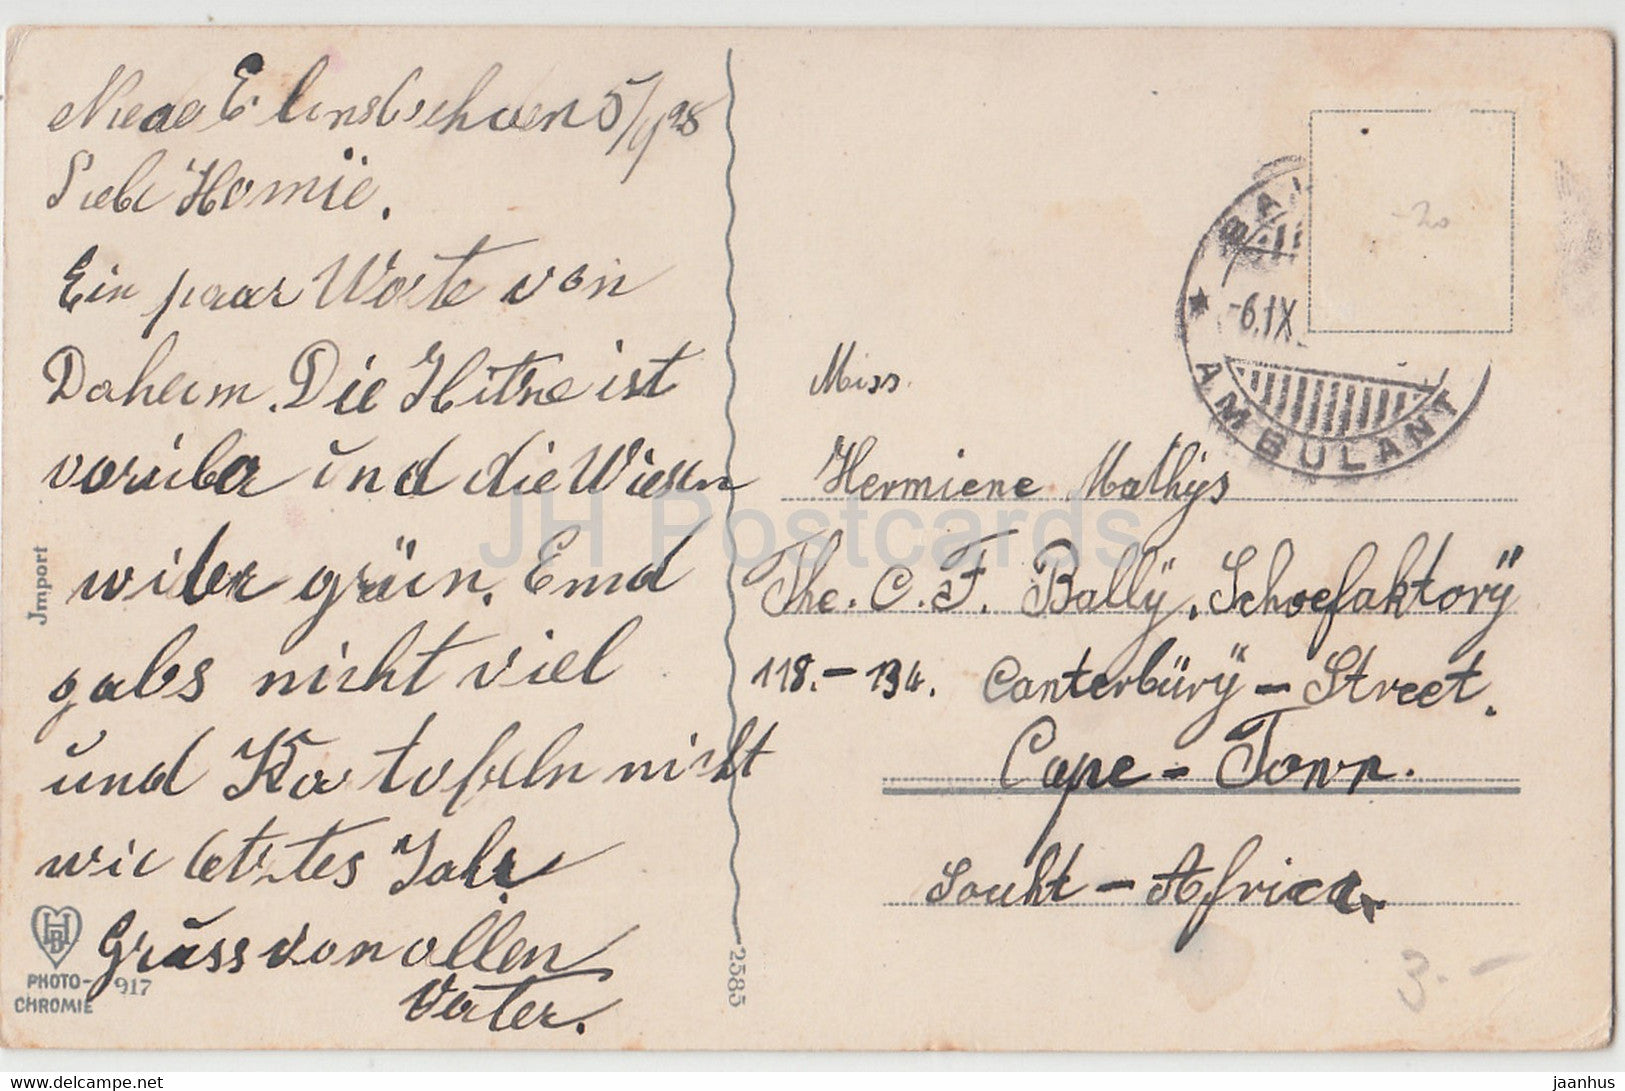 5/9 28
Liebe Homie.
Ein paar Worte von
Daheim. Die Hitze ist
vorüber und die Wiesen
wider grün. Emd
gabs nicht viel
und Kartofeln nicht
wie letztes Jahr
Gruss von allen
Vater.
Jmport
HB
PHOTO-
CHROMIE
917
2585
AMBULANT
-6.IX
-20
Miss.
Hermiene Mathÿs
The. C. F. Ballÿ. Schoefaktorÿ
118.-134. Canterbürÿ-Street.
Cape-Town.
Souht-Africa.
3.-
JH Postcards
www.delcampe.net
jaanhus